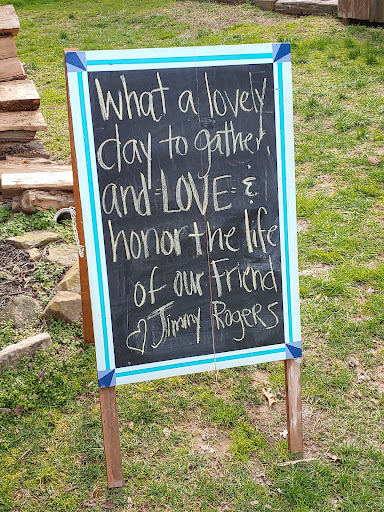 What a lovely
day to gather,
and =LOVE= &
honor the life
of our Friend
♡ Jimmy Rogers